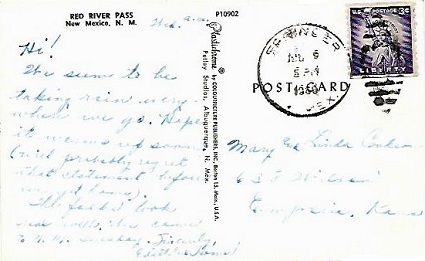 RED RIVER PASS
New Mexico, N. M.
P10902
Wed. a.m.
Hi!
We seem to be
taking rain every
where we go. Hope
it warms up soon
(will probably regret
that statement before
we get home).
The folks look
real well. We came
to N. M. Sunday. Sincerely,
Plastichrome
by COLOURPICTURE PUBLISHERS, INC., Boston 15, Mass., U.S.A.
Petley Studios, Albuquerque, N. Mex.
SPRINGER
6
PM
1960
N. MEX.
U.S. POSTAGE 3¢
LIBERTY
POST CARD
Mary Linda
Emporia, Kans